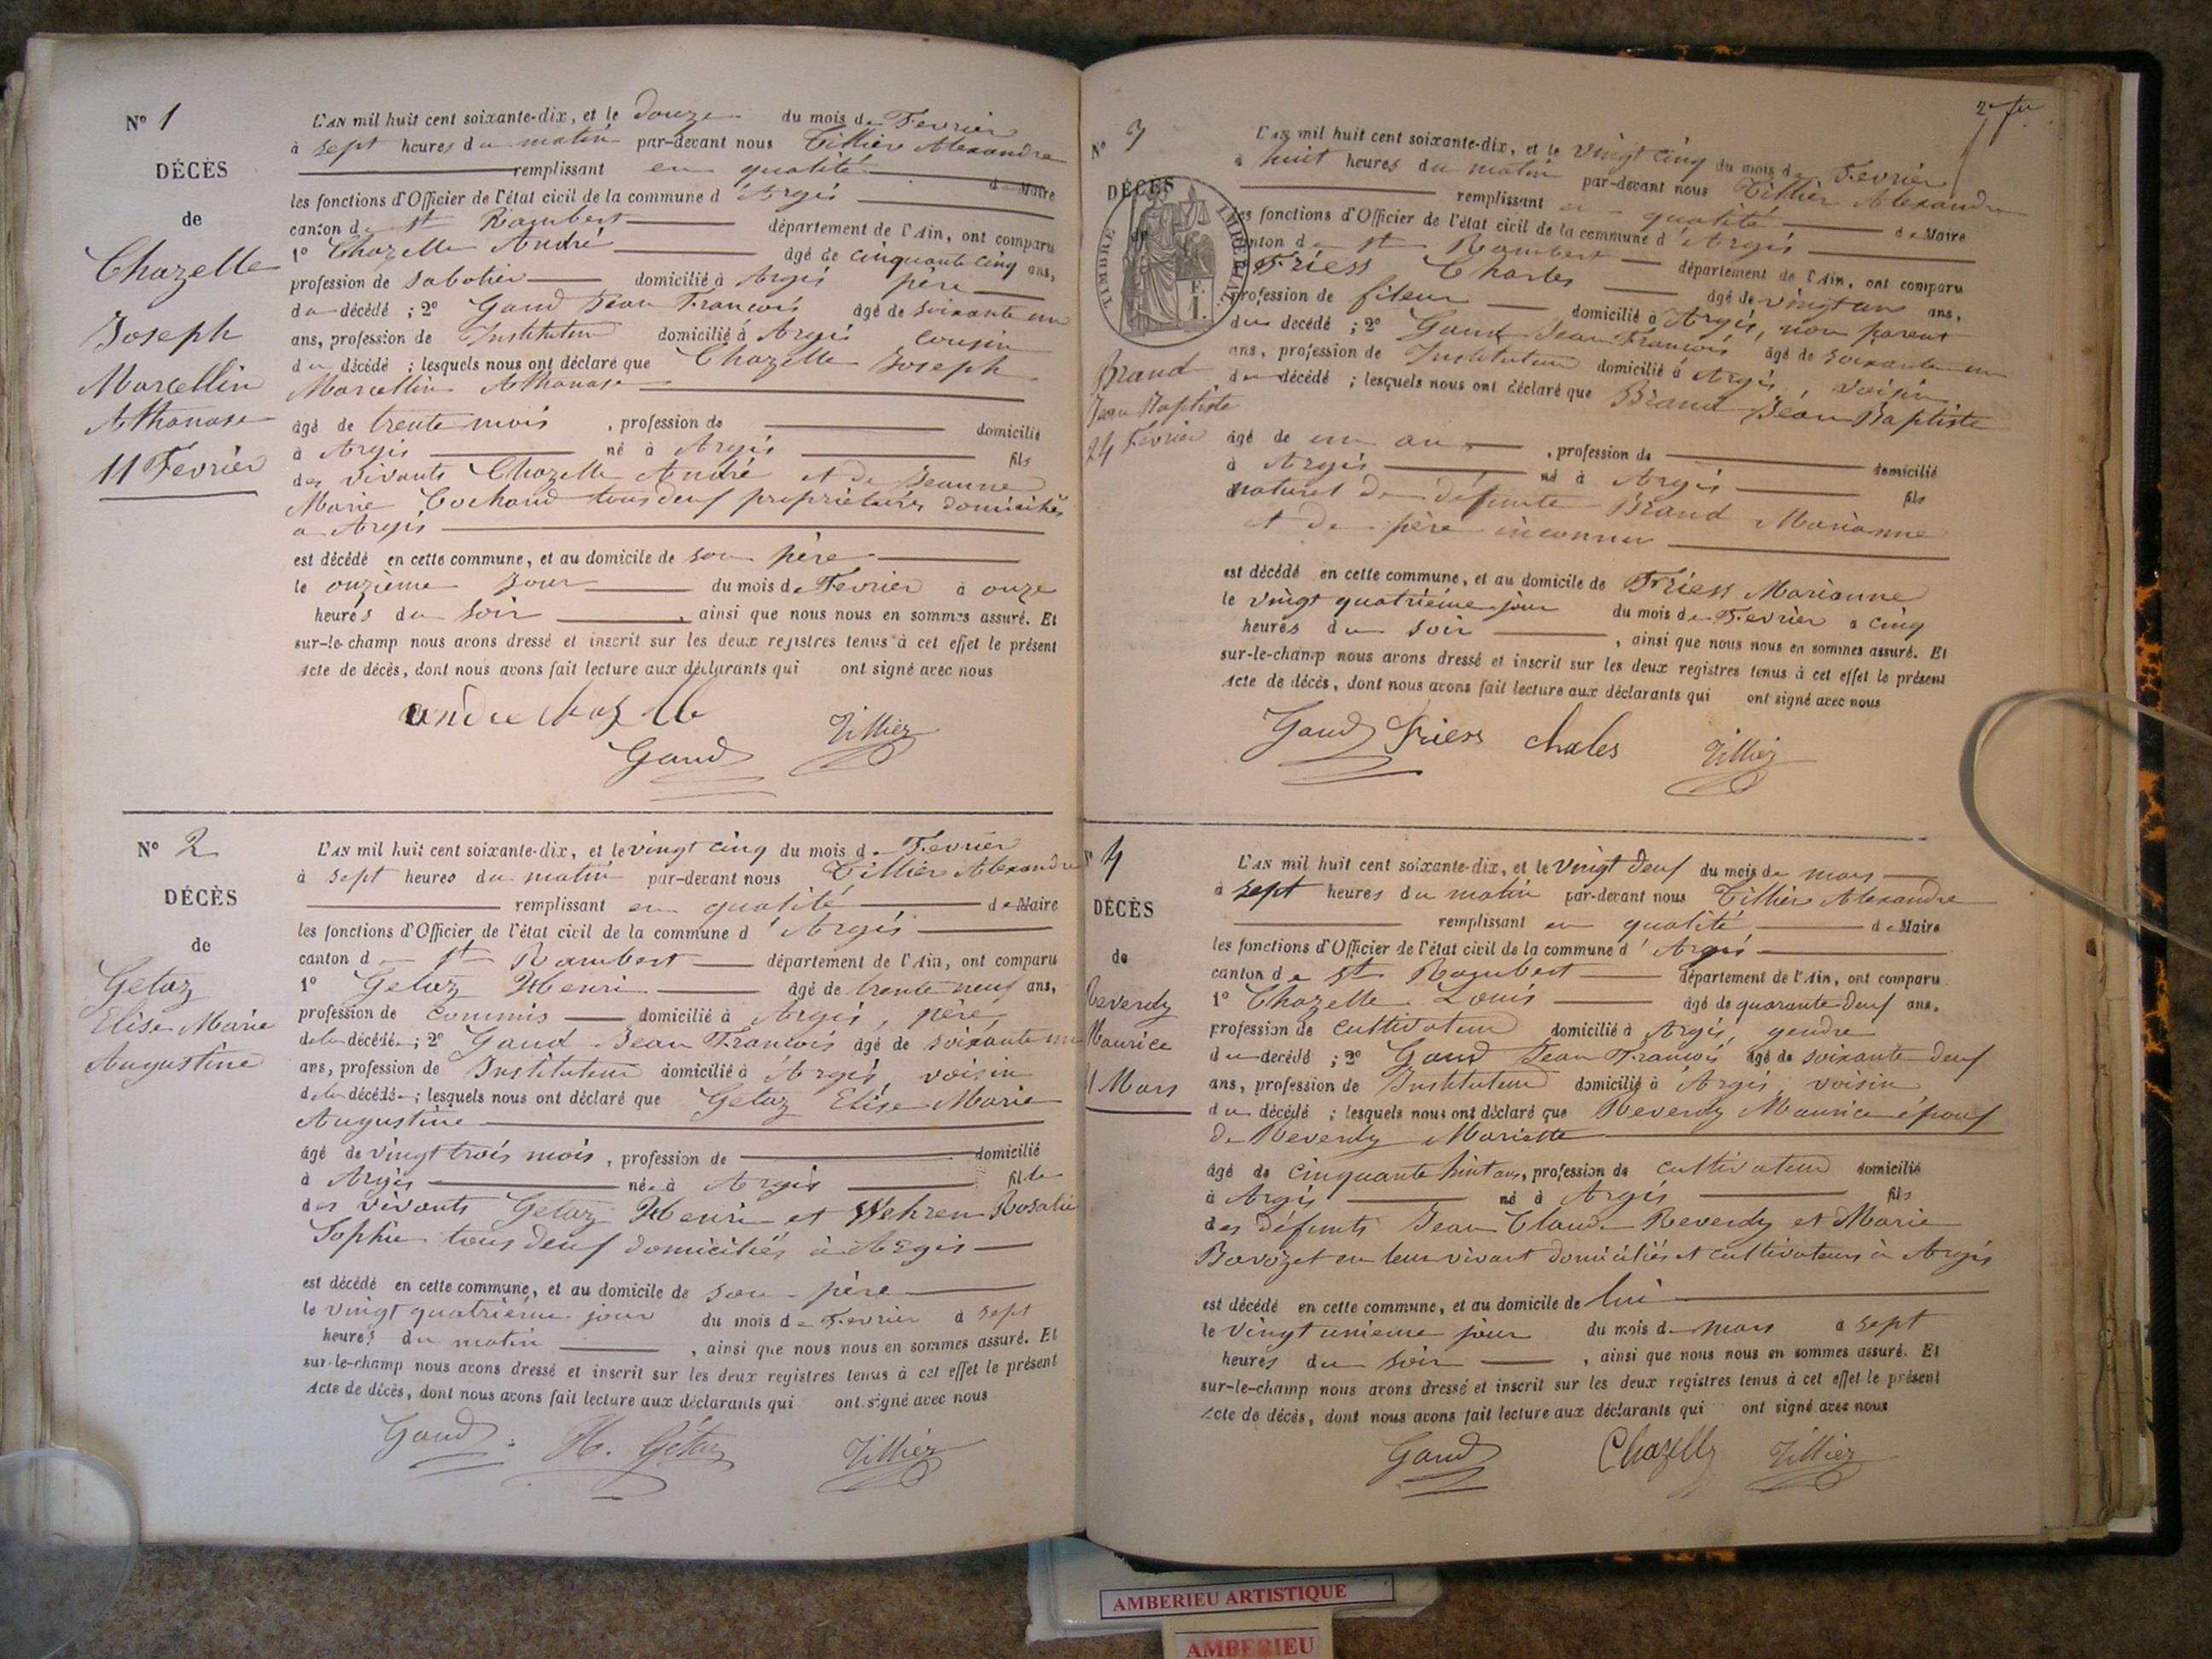 Nº 1
DÉCÈS
de
Chazelle
Joseph
Marcellin
Athanase
11 Fevrier
L'AN mil huit cent soixante-dix, et le douze du mois de Fevrier
à sept heures du matin par-devant nous Tillier Alexandre
remplissant en qualité de Maire
les fonctions d'Officier de l'état civil de la commune d'Argis
canton de st Rambert département de l'Ain, ont comparu
1º Chazelle André âgé de cinquante cinq ans,
profession de sabotier domicilié à Argis père
du décédé ; 2º Gaud Jean François âgé de soixante un
ans, profession de Instituteur domicilié à Argis cousin
du décédé ; lesquels nous ont déclaré que Chazelle Joseph
Marcellin Athanase
âgé de trente mois , profession de domicilié
à Argis né à Argis fils
des vivants Chazelle André et de Jeanne
Marie Cochand tous deux propriétaires domiciliés
a Argis
est décédé en cette commune, et au domicile de son père
le onzième jour du mois de Fevrier à onze
heures du soir , ainsi que nous nous en sommes assuré. Et
sur-le-champ nous avons dressé et inscrit sur les deux registres tenus à cet effet le présent
acte de décès, dont nous avons fait lecture aux déclarants qui ont signé avec nous
andre chazelle
Gaud Tillier
Nº 2
DÉCÈS
de
Getaz
Elise Marie
Augustine
L'AN mil huit cent soixante-dix, et le vingt cinq du mois de Fevrier
à sept heures du matin par-devant nous Tillier Alexandre
remplissant en qualité de Maire
les fonctions d'Officier de l'état civil de la commune d'Argis
canton d st Rambert département de l'Ain, ont comparu
1º Getaz Henri âgé de trente neuf ans,
profession de commis domicilié à Argis, père
de la décédée ; 2º Gaud Jean François âgé de soixante un
ans, profession de Instituteur domicilié à Argis, voisin
de la décédée ; lesquels nous ont déclaré que Getaz Elise Marie
Augustine
âgé de vingt trois mois , profession de domicilié
à Argis née à Argis fille
des vivants Getaz Henri et Wehren Rosalie
Sophie tous deux domiciliés à Argis
est décédé en cette commune, et au domicile de son père
le vingt quatrième jour du mois de Fevrier à sept
heures du matin , ainsi que nous nous en sommes assuré. Et
sur-le-champ nous avons dressé et inscrit sur les deux registres tenus à cet effet le présent
acte de décès, dont nous avons fait lecture aux déclarants qui ont signé avec nous
Gaud H. Gétaz Tillier
Nº 3
DÉCÈS
TIMBRE IMPÉRIAL
F.
1.
Brand
Jean Baptiste
24 Fevrier
L'AN mil huit cent soixante-dix, et le vingt cinq du mois de Fevrier
à huit heures du matin par-devant nous Tillier Alexandre
remplissant en qualité de Maire
les fonctions d'Officier de l'état civil de la commune d'Argis
canton de st Rambert département de l'Ain, ont comparu
Friess Charles âgé de vingt un ans,
profession de fileur domicilié à Argis, non parent
du decédé ; 2º Gaud Jean François âgé de soixante un
ans, profession de Instituteur domicilié à Argis, voisin
du décédé ; lesquels nous ont déclaré que Brand Jean Baptiste
âgé de un an , profession de domicilié
à Argis né à Argis fils
naturel de defunte Brand Marianne
et de père inconnu
est décédé en cette commune, et au domicile de Friess Marianne
le vingt quatrième jour du mois de Fevrier à cinq
heures du soir , ainsi que nous nous en sommes assuré. Et
sur-le-champ nous avons dressé et inscrit sur les deux registres tenus à cet effet le présent
acte de décès, dont nous avons fait lecture aux déclarants qui ont signé avec nous
Gaud Friess chales Tillier
4
DÉCÈS
de
Reverdy
Maurice
21 Mars
L'AN mil huit cent soixante-dix, et le vingt deux du mois de mars
à sept heures du matin par-devant nous Tillier Alexandre
remplissant en qualité de Maire
les fonctions d'Officier de l'état civil de la commune d'Argis
canton de st Rambert département de l'Ain, ont comparu
1º Chazelle Louis âgé de quarante deux ans,
profession de cultivateur domicilié à Argis, gendre
du decédé ; 2º Gaud Jean François âgé de soixante deux
ans, profession de Instituteur domicilié à Argis voisin
du décédé ; lesquels nous ont déclaré que Reverdy Maurice époux
de Reverdy Mariette
âgé de cinquante huit ans, profession de cultivateur domicilié
à Argis né à Argis fils
des défunts Jean Claude Reverdy et Marie
Bavozet en leur vivant domiciliés et cultivateurs à Argis
est décédé en cette commune, et au domicile de lui
le vingt unieme jour du mois de mars à sept
heures du soir , ainsi que nous nous en sommes assuré. Et
sur-le-champ nous avons dressé et inscrit sur les deux registres tenus à cet effet le présent
acte de décès, dont nous avons fait lecture aux déclarants qui ont signé avec nous
Gaud Chazelle Tillier
AMBERIEU ARTISTIQUE
AMBERIEU